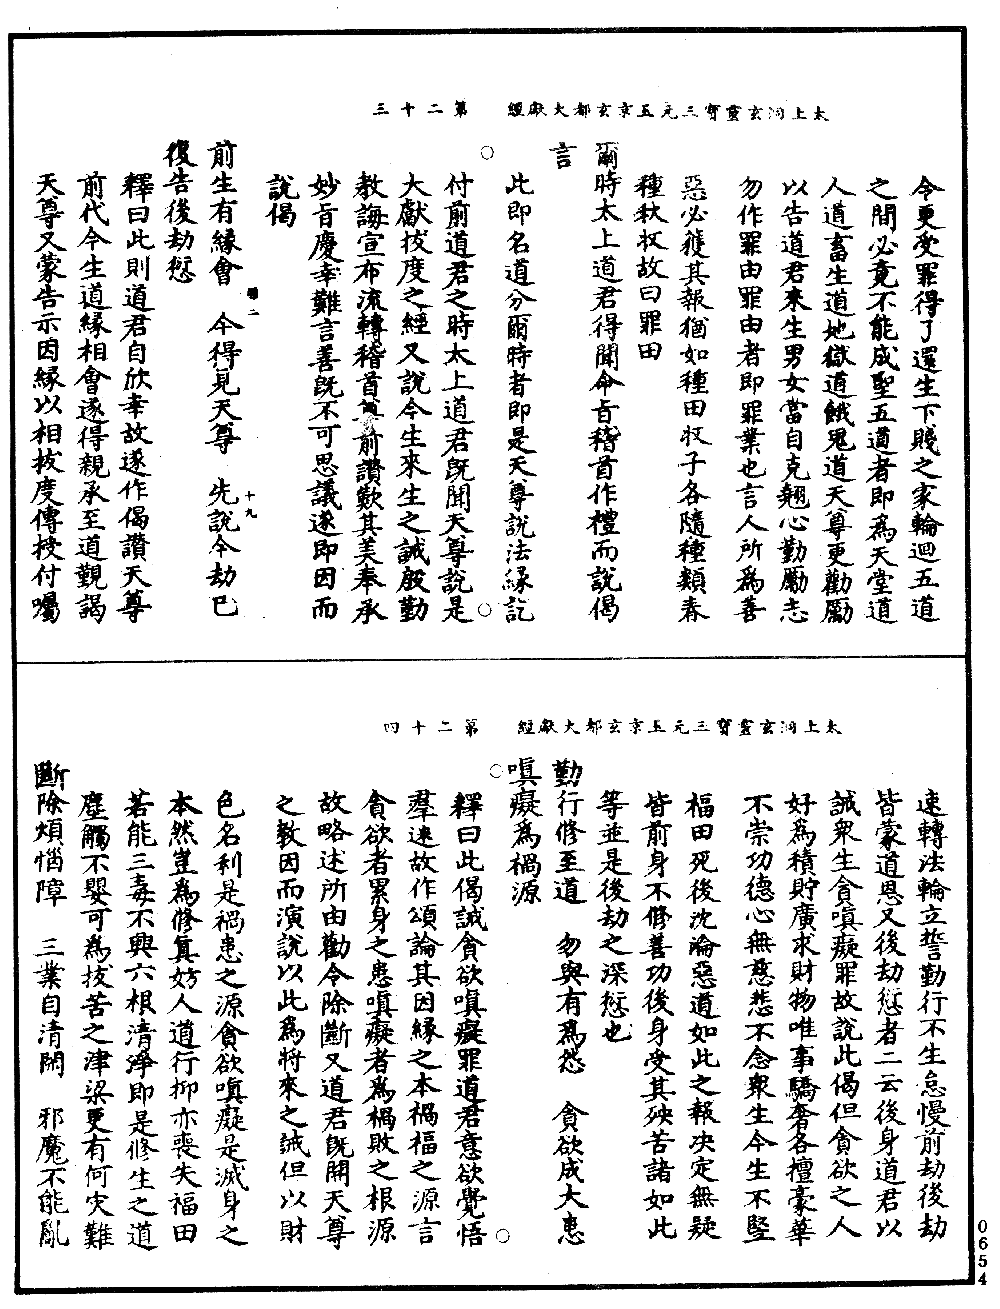 太上洞玄靈寶三元玉京玄都大獻經　第二十三
令更受罪得了還生下賤之家輪迴五道
之間必竟不能成聖五道者即為天堂道
人道畜生道地獄道餓鬼道天尊更勸勵
以告道君來生男女當自克翹心勤勵志
勿作罪由罪由者即罪業也言人所為善
惡必獲其報猶如種田收子各隨種類春
種秋收故曰罪田
爾時太上道君得聞命旨稽首作禮而說偈
言
此即名道分爾時者即是天尊說法緣訖
付前道君之時太上道君既聞天尊說是
大獻拔度之經又說今生來生之誡殷勤
教誨宣布流轉稽首前讚歎其美奉承
妙旨慶幸難言善既不可思議遂即因而
說偈
前生有緣會　今得見天尊　先說今劫巳
復告後劫愆
釋曰此則道君自欣幸故遂作偈讚天尊
前代今生道緣相會遂得親承至道觀謁
天尊又蒙告示因緣以相拔度傳授付囑
十九
太上洞玄靈寶三元玉京玄都大獻經　第二十四
速轉法輪立誓勤行不生怠慢前劫後劫
皆蒙道恩又後劫愆者二云後身道君以
誡衆生貪嗔癡罪故說此偈但貪欲之人
好為積貯廣求財物唯事驕奢各擅豪華
不崇功德心無慈悲不念衆生今生不堅
福田死後沈淪惡道如此之報決定無疑
皆前身不修善功後身受其殃苦諸如此
等並是後劫之深愆也
勤行修至道　勿與有為怨　貪欲成大患
嗔癡為禍源
釋曰此偈誡貪欲嗔癡罪道君意欲覺悟
羣迷故作頌論其因緣之本禍福之源言
貪欲者累身之患嗔癡者為禍敗之根源
故略述所由勸令除斷又道君既開天尊
之教因而演說以此為將來之誡但以財
色名利是禍患之源貪欲嗔癡是滅身之
本然豈為修真妨人道行抑亦喪失福田
若能三毒不興六根清淨即是修生之道
塵觸不嬰可為拔苦之津梁更有何灾難
斷除煩惱障　三業自清閑　邪魔不能亂
0654